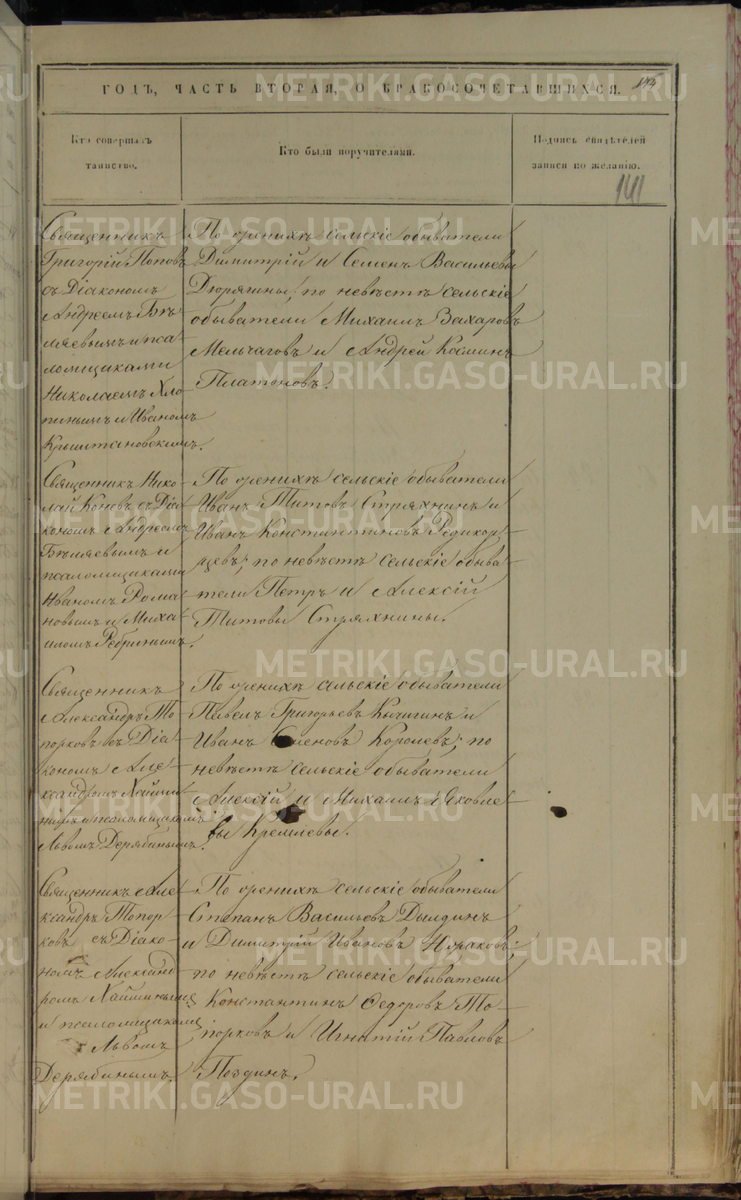 ГОДЪ, ЧАСТЬ ВТОРАЯ, О БРАКОСОЧЕТАВШИХСЯ.
141
Кто совершалъ таинство.
Кто были поручителями.
Подпись свидѣтелей записи по желанію.
Священникъ
Григорій Поповъ
съ Діакономъ
Андреемъ Бѣ-
ляевымъ и пса-
ломщиками
Николаемъ Хло-
пинымъ и Иваномъ
Крыштановскимъ.
По женихѣ сельскіе обыватели
Димитрій и Семенъ Васильевы
Дюрягины; по невѣстѣ сельскіе
обыватели Михаилъ Захаровъ
Мельчаговъ и Андрей Козминъ
Платоновъ.
Священникъ Нико-
лай Коновъ съ Діа-
кономъ Андреемъ
Бѣляевымъ и
псаломщиками
Иваномъ Рома-
новымъ и Миха-
иломъ Ребринымъ.
По женихѣ сельскіе обыватели
Иванъ Титовъ Стряхнинъ и
Иванъ Константиновъ Редикор-
цевъ; по невѣстѣ сельскіе обыва-
тели Петръ и Алексій
Титовы Стряхнины.
Священникъ
Александръ То-
порковъ съ Діа-
кономъ Алек-
сандромъ
и псаломщикомъ
Львомъ Дерябинымъ.
По женихѣ сельскіе обыватели
Павелъ Григорьевъ Кичигинъ и
Иванъ Семеновъ Королевъ; по
невѣстѣ сельскіе обыватели
Алексій и Михаилъ Яковле-
вы Кремлевы.
Священникъ Але-
ксандръ Топор-
ковъ съ Діако-
номъ Александ-
ромъ
и псаломщикомъ
Львомъ
Дерябинымъ.
По женихѣ сельскіе обыватели
Степанъ Васильевъ Дылдинъ
и Димитрій Ивановъ
по невѣстѣ сельскіе обыватели
Константинъ Ѳедоровъ То-
порковъ и Игнатій Павловъ
Поздинъ.
METRIKI.GASO-URAL.RU